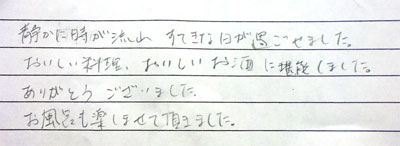 静かに時が流れ すてきな日が過ごせました。
おいしい料理、おいしいお酒に堪能しました。
ありがとうございました。
お風呂も楽しませて頂きました。